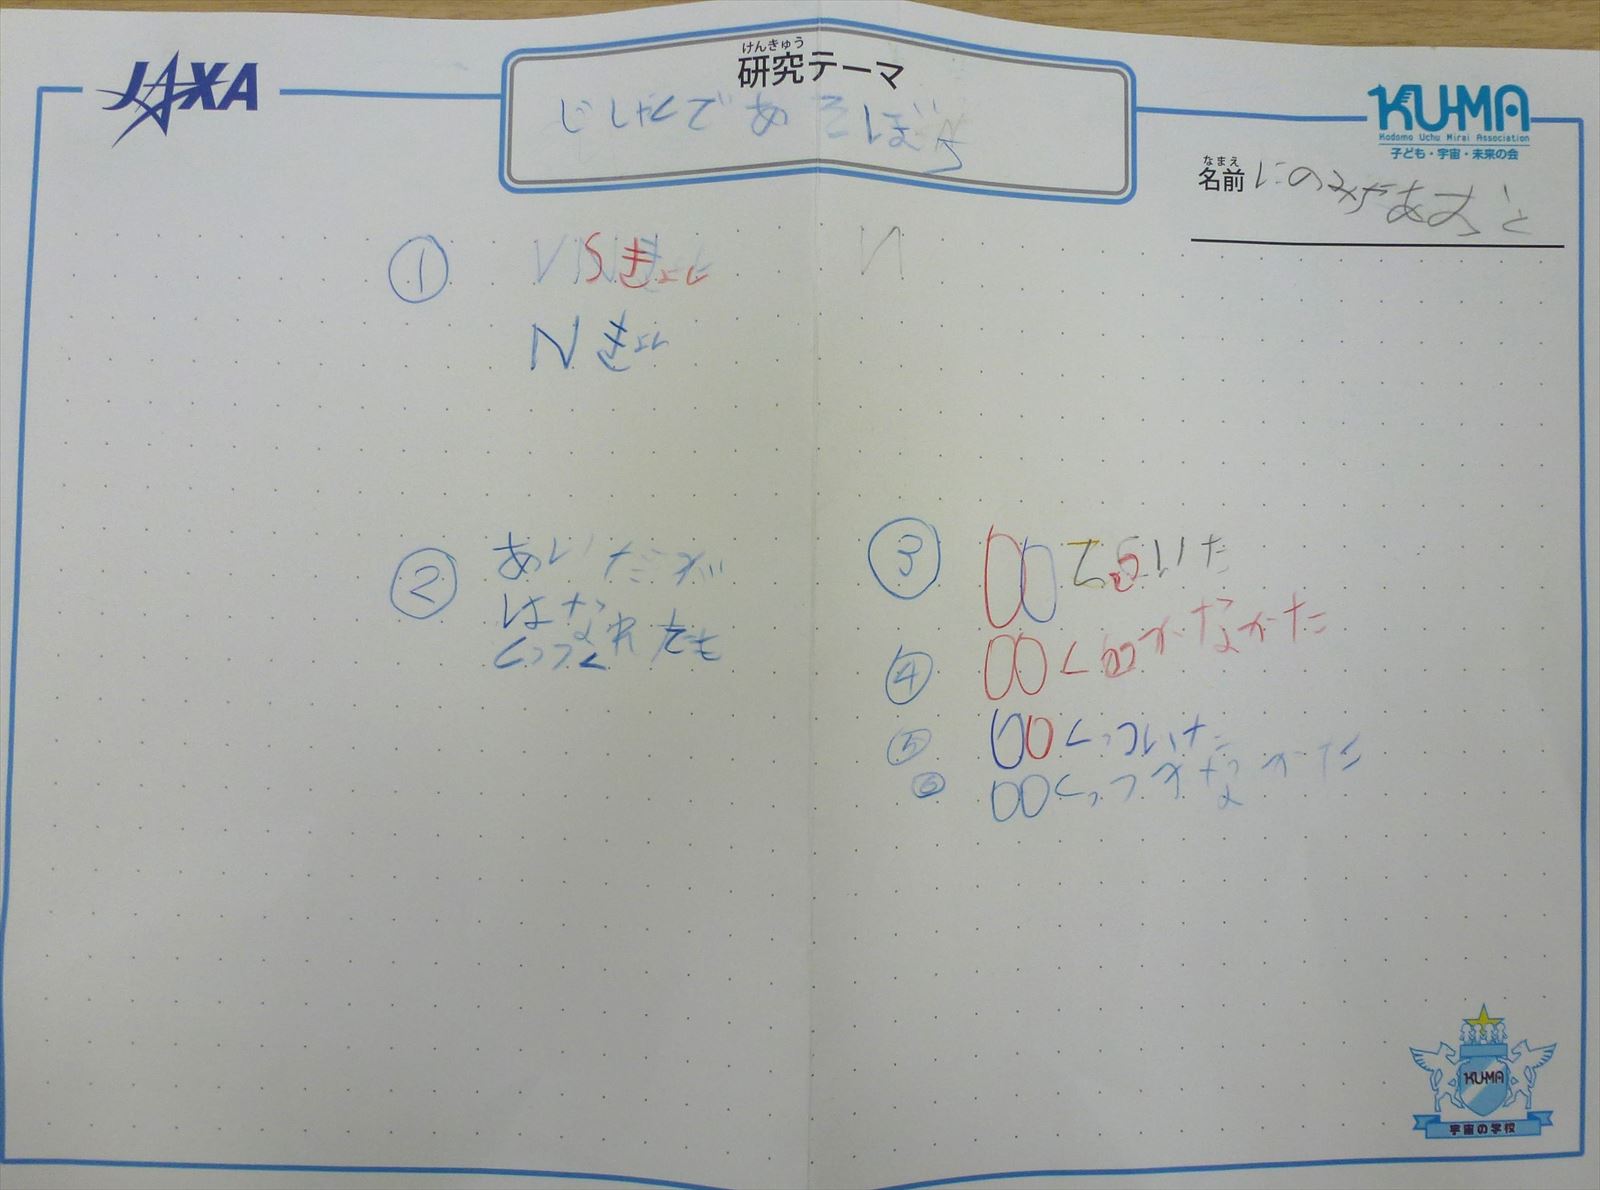 JAXA
けんきゅう
研究テーマ
じしゃくであそぼう
KU-MA
Kodomo Uchu Mirai Association
子ども・宇宙・未来の会
なまえ
名前
① Sきょく
Nきょく
② あいだが
はなれても
くっつく
③ いた
④ くっつかなかた
⑤ くっついた
⑥ くっつかなかた
KU-MA
宇宙の学校